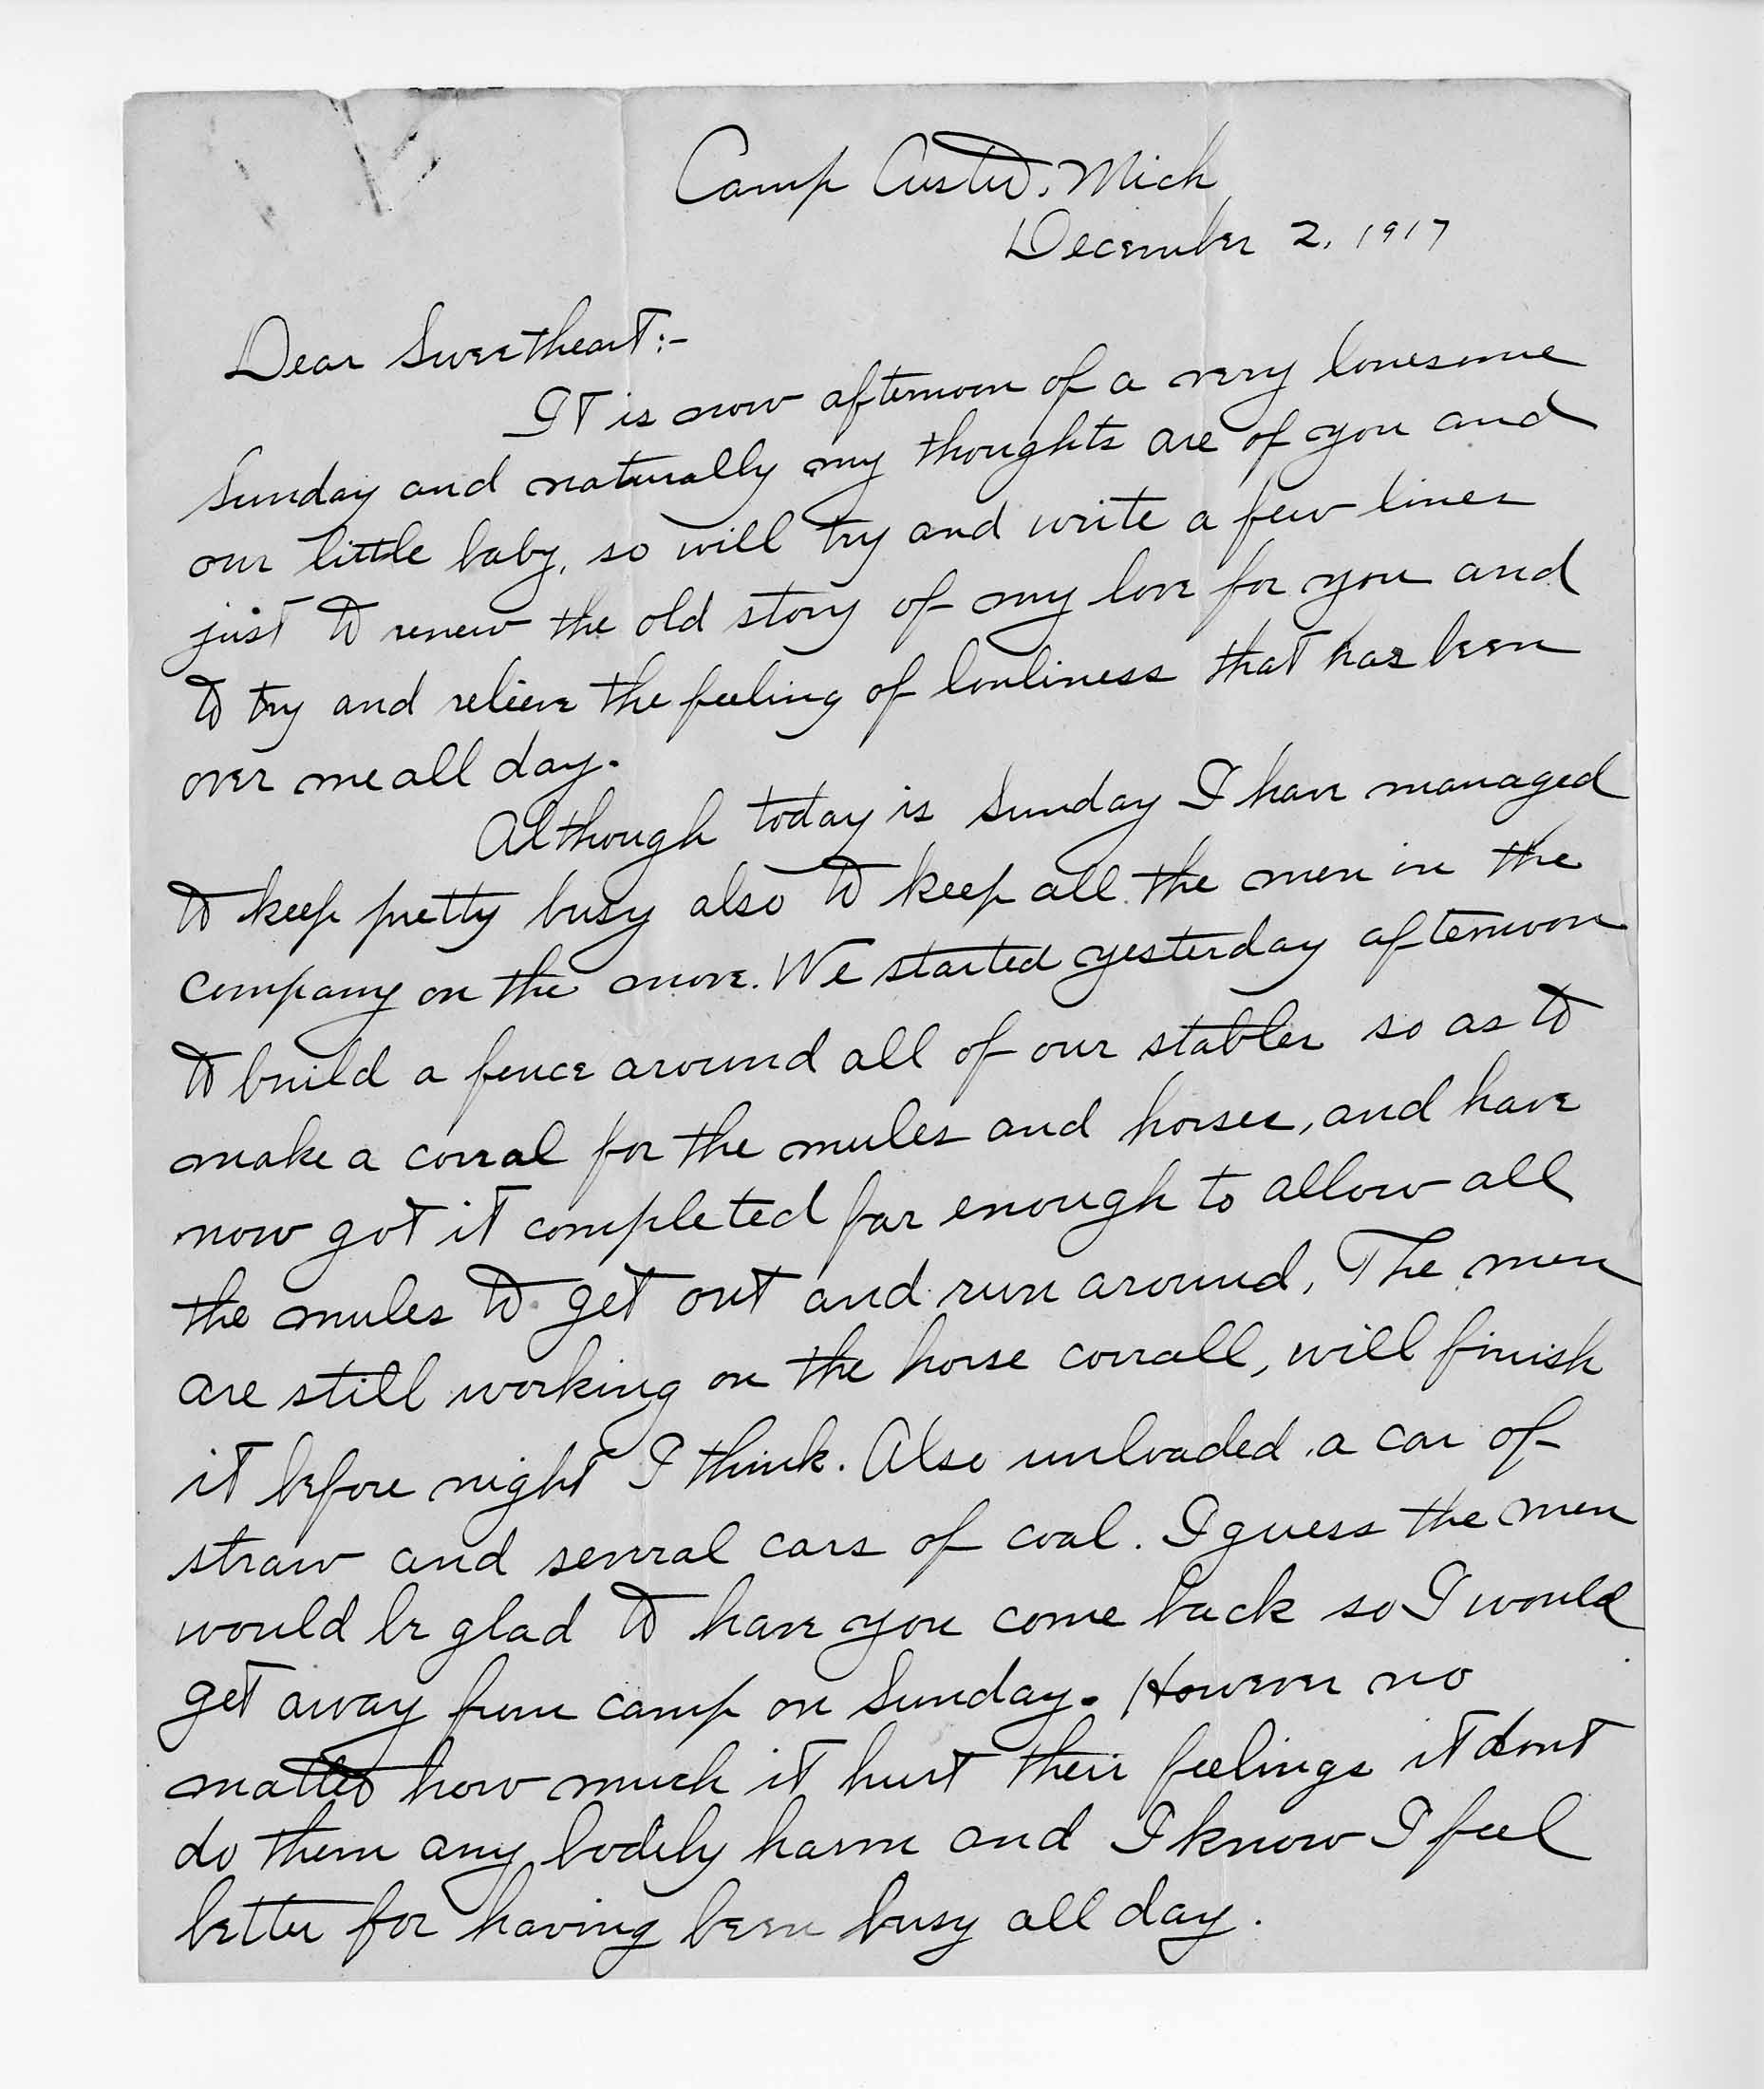 Camp Custer, Mich
December 2, 1917
Dear Sweetheart:-
It is now afternoon of a very lonesome
Sunday and naturally my thoughts are of you and
our little baby, so will try and write a few lines
just to renew the old story of my love for you and
to try and relieve the feeling of lonliness that has been
over me all day.
Although today is Sunday I have managed
to keep pretty busy also to keep all the men in the
company on the move. We started yesterday afternoon
to build a fence around all of our stables so as to
make a corral for the mules and horses, and have
now got it completed far enough to allow all
the mules to get out and run around, The men
are still working on the horse corrall, will finish
it before night I think. Also unloaded a car of
straw and several cars of coal. I guess the men
would be glad to have you come back so I would
get away from camp on Sunday. However no
matter how much it hurt their feelings it dont
do them any bodily harm and I know I feel
better for having been busy all day.